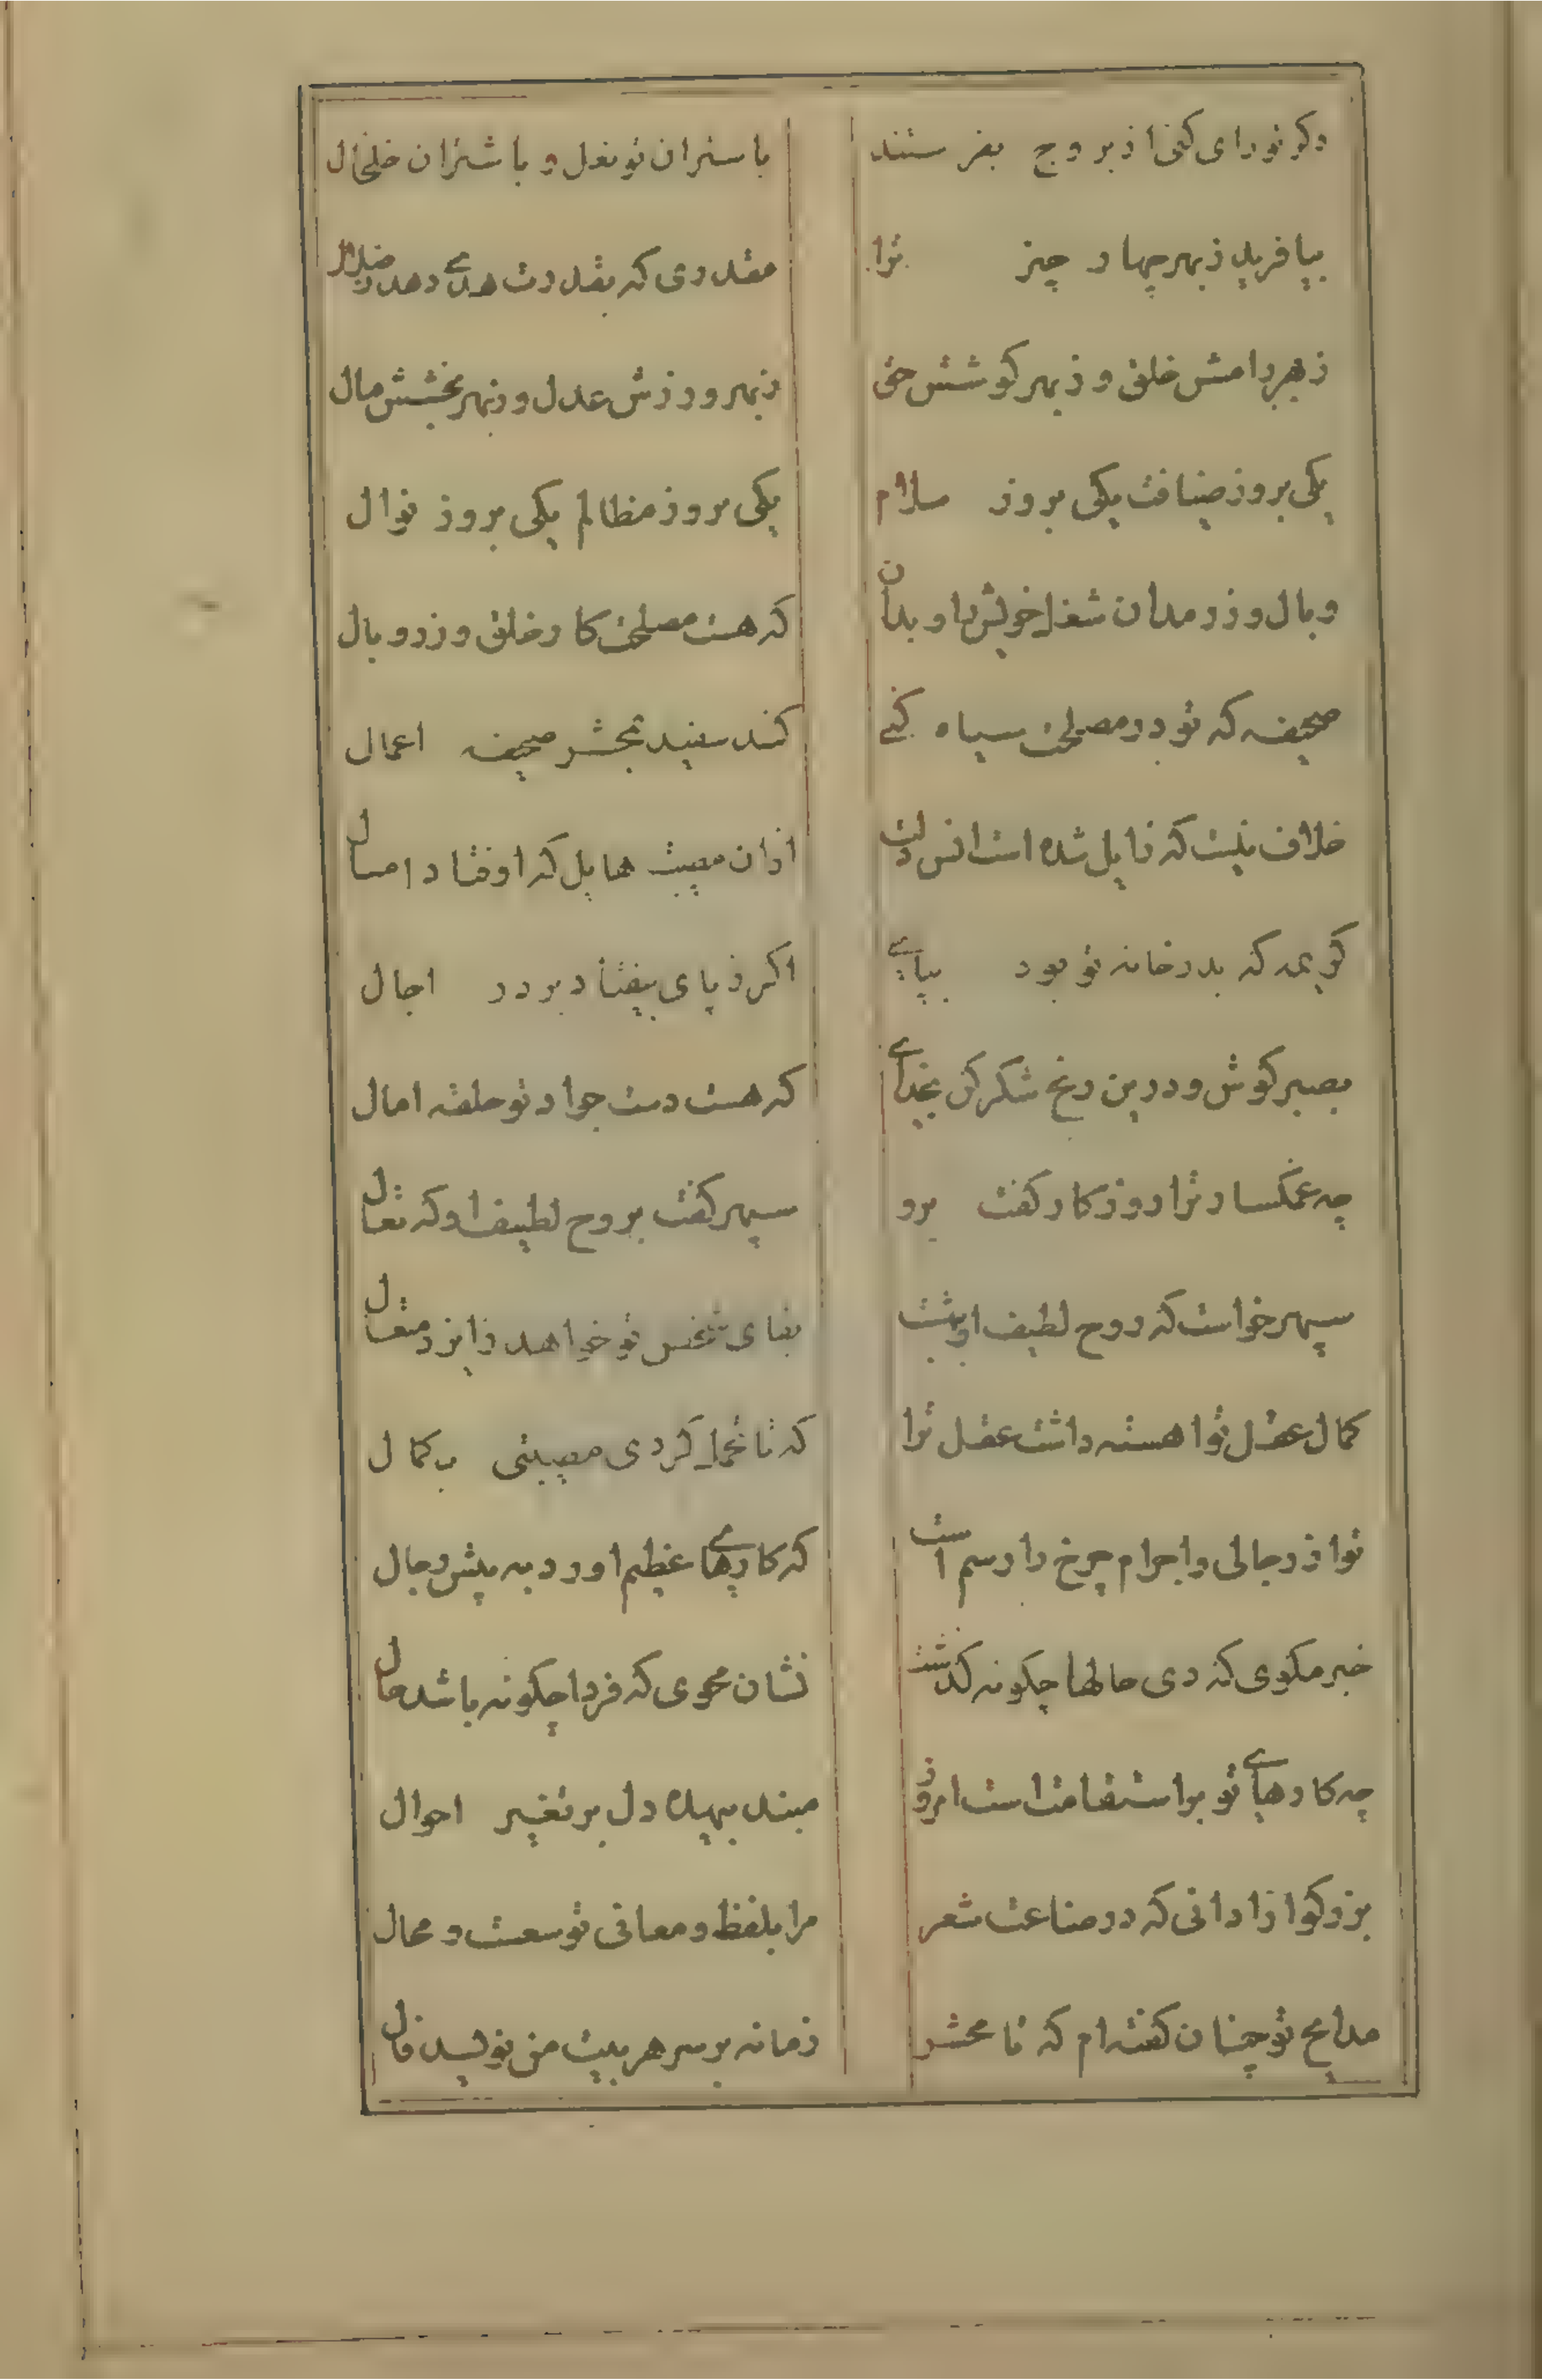 دکر تو رای کنی از بروج بفرستند باستران تو نعل و باشتران خلخال
بیافرید ز بهر چهار چیز ترا مقدری که بقدرت هدی دهد ز ضلال
ز بهر رامش خلق و ز بهر کوشش حق ز بهر ورزش عدل و ز بهر بخشش مال
یکی بروز ضیافت یکی بروز سلام یکی بروز مظالم یکی بروز نوال
وبال و زر مدان شغل خویش را و بدان که هست مصلحت کار خلق وزر و بال
صحیفه که تو در مصلحت سیاه کنی کند سفید بحشر صحیفه اعمال
خلاف نیست که زایل شده است انس دلت ازان مصیبت هایل که اوفتاد امسال
کریمه که بدر خانه تو بود بپای اکر ز پای بیفتاد بر در اجال
بصبر کوش و درین رنج شکر کن بخدای که هست دست جواد تو حلقه امال
چه غمکسار ترا روزکار کفت برو سپهر کفت بروح لطیف او که تعال
سپهر خواست که روح لطیف او بیشت بقای شخص تو خواهد ز ایزد متعال
کمال عقل تو اهسته داشت عقل ترا که تا تحمل کردی مصیبتی بکمال
تو از رجالی و اجرام چرخ را رسم است که کارهای عظیم اورد به پیش رجال
خبر مکوی که دی حالها چکونه کذشت نشان مجوی که فردا چکونه باشد حال
چه کارهای تو بر استقامت است امروز مبند بیهده دل بر تغییر احوال
بزرکوارا دانی که در صناعت شعر مرا بلفظ و معانی توسعت و مجال
مدایح تو چنان کفته ام که تا محشر زمانه بر سر هر بیت من نویسد قال